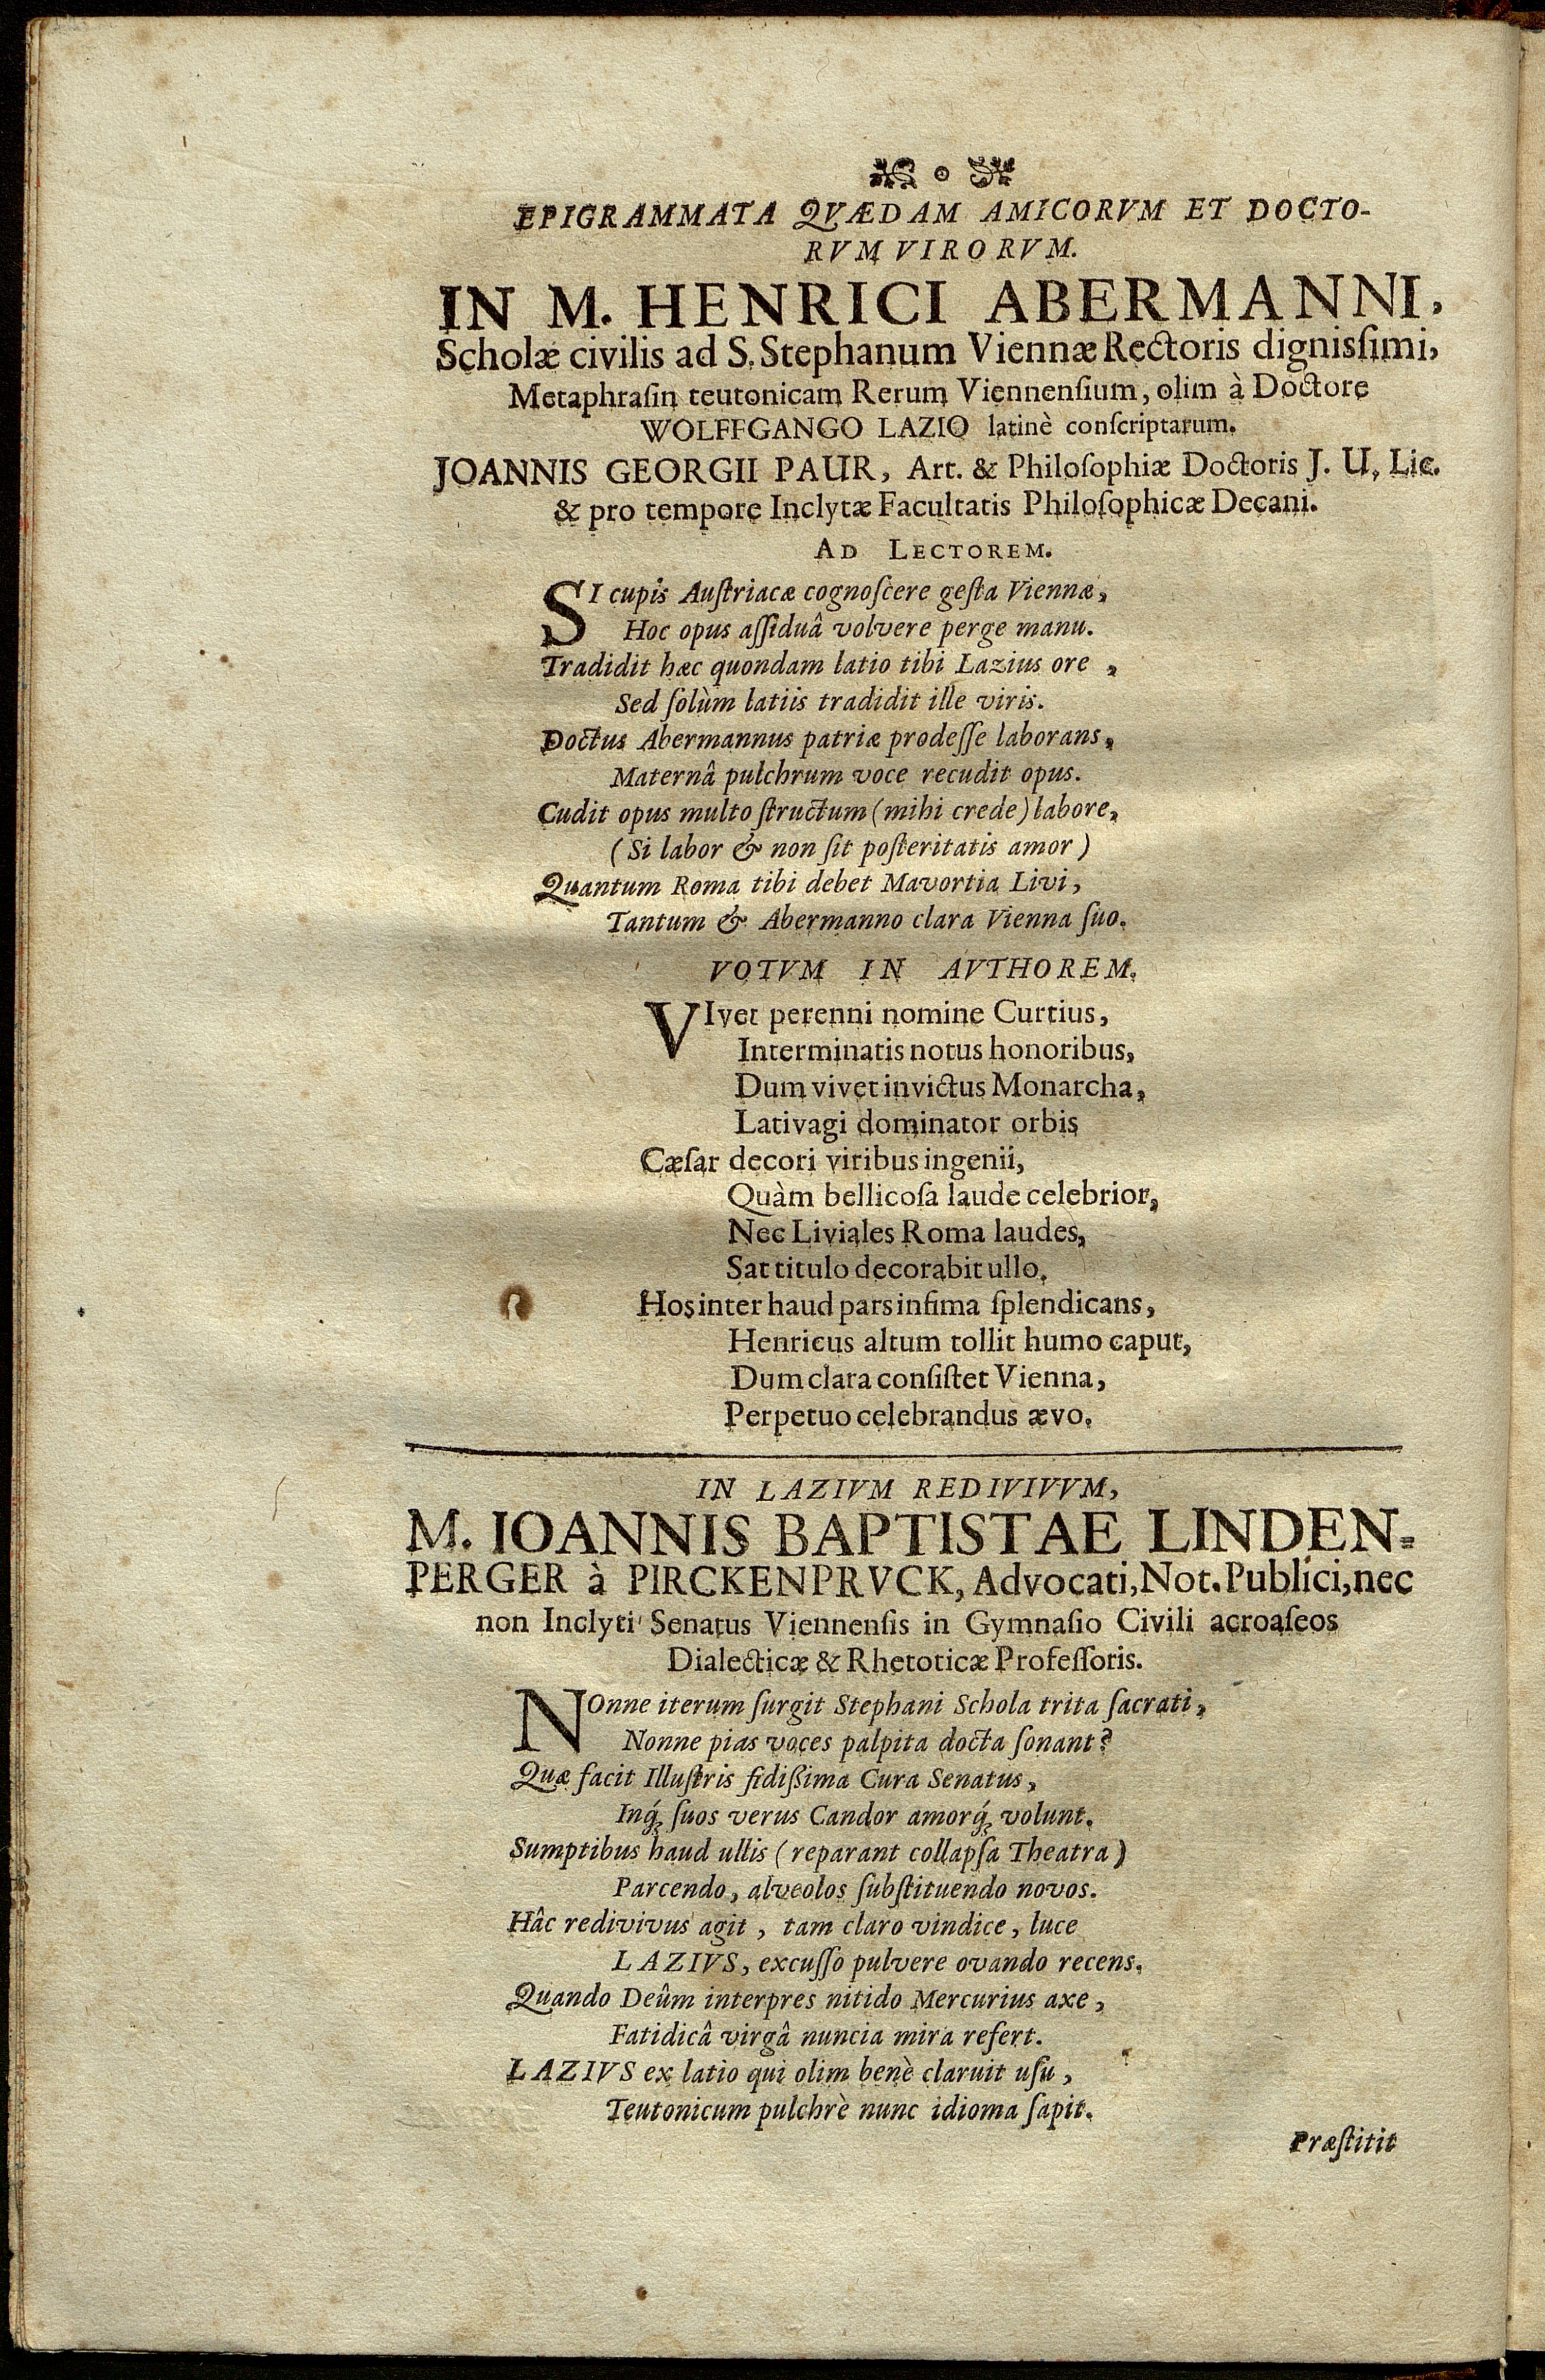 EPIGRAMMATA QVÆDAM AMICORVM ET DOCTO-
RVM VIRORVM.
IN M. HENRICI ABERMANNI,
Scholæ civilis ad S. Stephanum Viennæ Rectoris digniſsimi,
Metaphraſin teutonicam Rerum Viennenſium, olim à Doctore
WOLFFGANGO LAZIO latinè conſcriptarum.
JOANNIS GEORGII PAUR, Art. & Philoſophiæ Doctoris J. U. Lic.
& pro tempore Inclytæ Facultatis Philoſophicæ Decani.
AD LECTOREM.
SI cupis Auſtriacæ cognoſcere geſta Viennæ,
Hoc opus aſſiduâ volvere perge manu.
Tradidit hæc quondam latio tibi Lazius ore,
Sed ſolùm latiis tradidit ille viris.
Doctus Abermannus patriæ prodeſſe laborans,
Maternâ pulchrum voce recudit opus.
Cudit opus multo ſtructum (mihi crede) labore,
(Si labor & non ſit poſteritatis amor)
Quantum Roma tibi debet Mavortia Livi,
Tantum & Abermanno clara Vienna ſuo.
VOTVM IN AVTHOREM.
VIvet perenni nomine Curtius,
Interminatis notus honoribus,
Dum vivet invictus Monarcha,
Lativagi dominator orbis
Cæſar decori viribus ingenii,
Quàm bellicoſa laude celebrior,
Nec Liviales Roma laudes,
Sat titulo decorabit ullo.
Hos inter haud pars infima ſplendicans,
Henricus altum tollit humo caput,
Dum clara conſiſtet Vienna,
Perpetuo celebrandus ævo.
IN LAZIVM REDIVIVVM,
M. IOANNIS BAPTISTAE LINDEN-
PERGER à PIRCKENPRVCK, Advocati, Not. Publici, nec
non Inclyti Senatus Viennenſis in Gymnaſio Civili acroaſeos
Dialecticæ & Rhetoticæ Profeſſoris.
NOnne iterum ſurgit Stephani Schola trita ſacrati,
Nonne pias voces palpita docta ſonant?
Quæ facit Illuſtris fidißima Cura Senatus,
Inq́; ſuos verus Candor amorq́; volunt.
Sumptibus haud ullis (reparant collapſa Theatra)
Parcendo, alveolos ſubſtituendo novos.
Hâc redivivus agit, tam claro vindice, luce
LAZIVS, excuſſo pulvere ovando recens.
Quando Deûm interpres nitido Mercurius axe,
Fatidicâ virgâ nuncia mira refert.
LAZIVS ex latio qui olim benè claruit uſu,
Teutonicum pulchrè nunc idioma ſapit.
Præſtitit